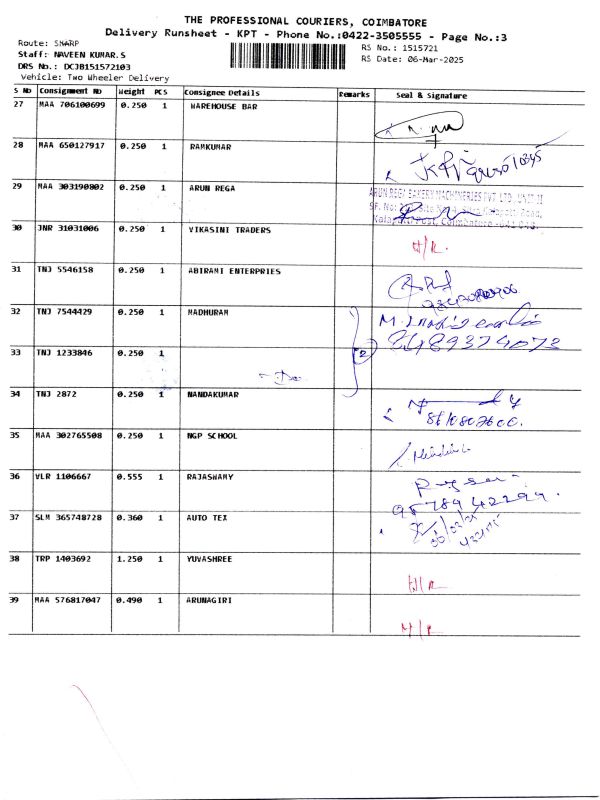 THE PROFESSIONAL COURIERS, COIMBATORE
Delivery Runsheet - KPT - Phone No.:0422-3505555 - Page No.:3
Route: SHARP
Staff: NAVEEN KUMAR.S
DRS No.: DCJB151572103
Vehicle: Two Wheeler Delivery
RS No.: 1515721
RS Date: 06-Mar-2025
S No Consignment No Weight PCS Consignee Details Remarks Seal & Signature
27 MAA 706100699 0.250 1 WAREHOUSE BAR
28 MAA 650127917 0.250 1 RAMKUMAR
29 MAA 303190802 0.250 1 ARUN REGA
ARUN REGA BAKERY MACHINERIES PVT. LTD., UNIT-II
30 JNR 31031006 0.250 1 VIKASINI TRADERS
31 TNJ 5546158 0.250 1 ABIRAMI ENTERPRIES
32 TNJ 7544429 0.250 1 MADHURAM
8489374072
33 TNJ 1233846 0.250 1 - Do -
2
34 TNJ 2872 0.250 1 NANDAKUMAR
35 MAA 302765508 0.250 1 NGP SCHOOL
36 VLR 1106667 0.555 1 RAJASWAMY
37 SLM 365748728 0.360 1 AUTO TEX
38 TRP 1403692 1.250 1 YUVASHREE
39 MAA 576817047 0.490 1 ARUNAGIRI